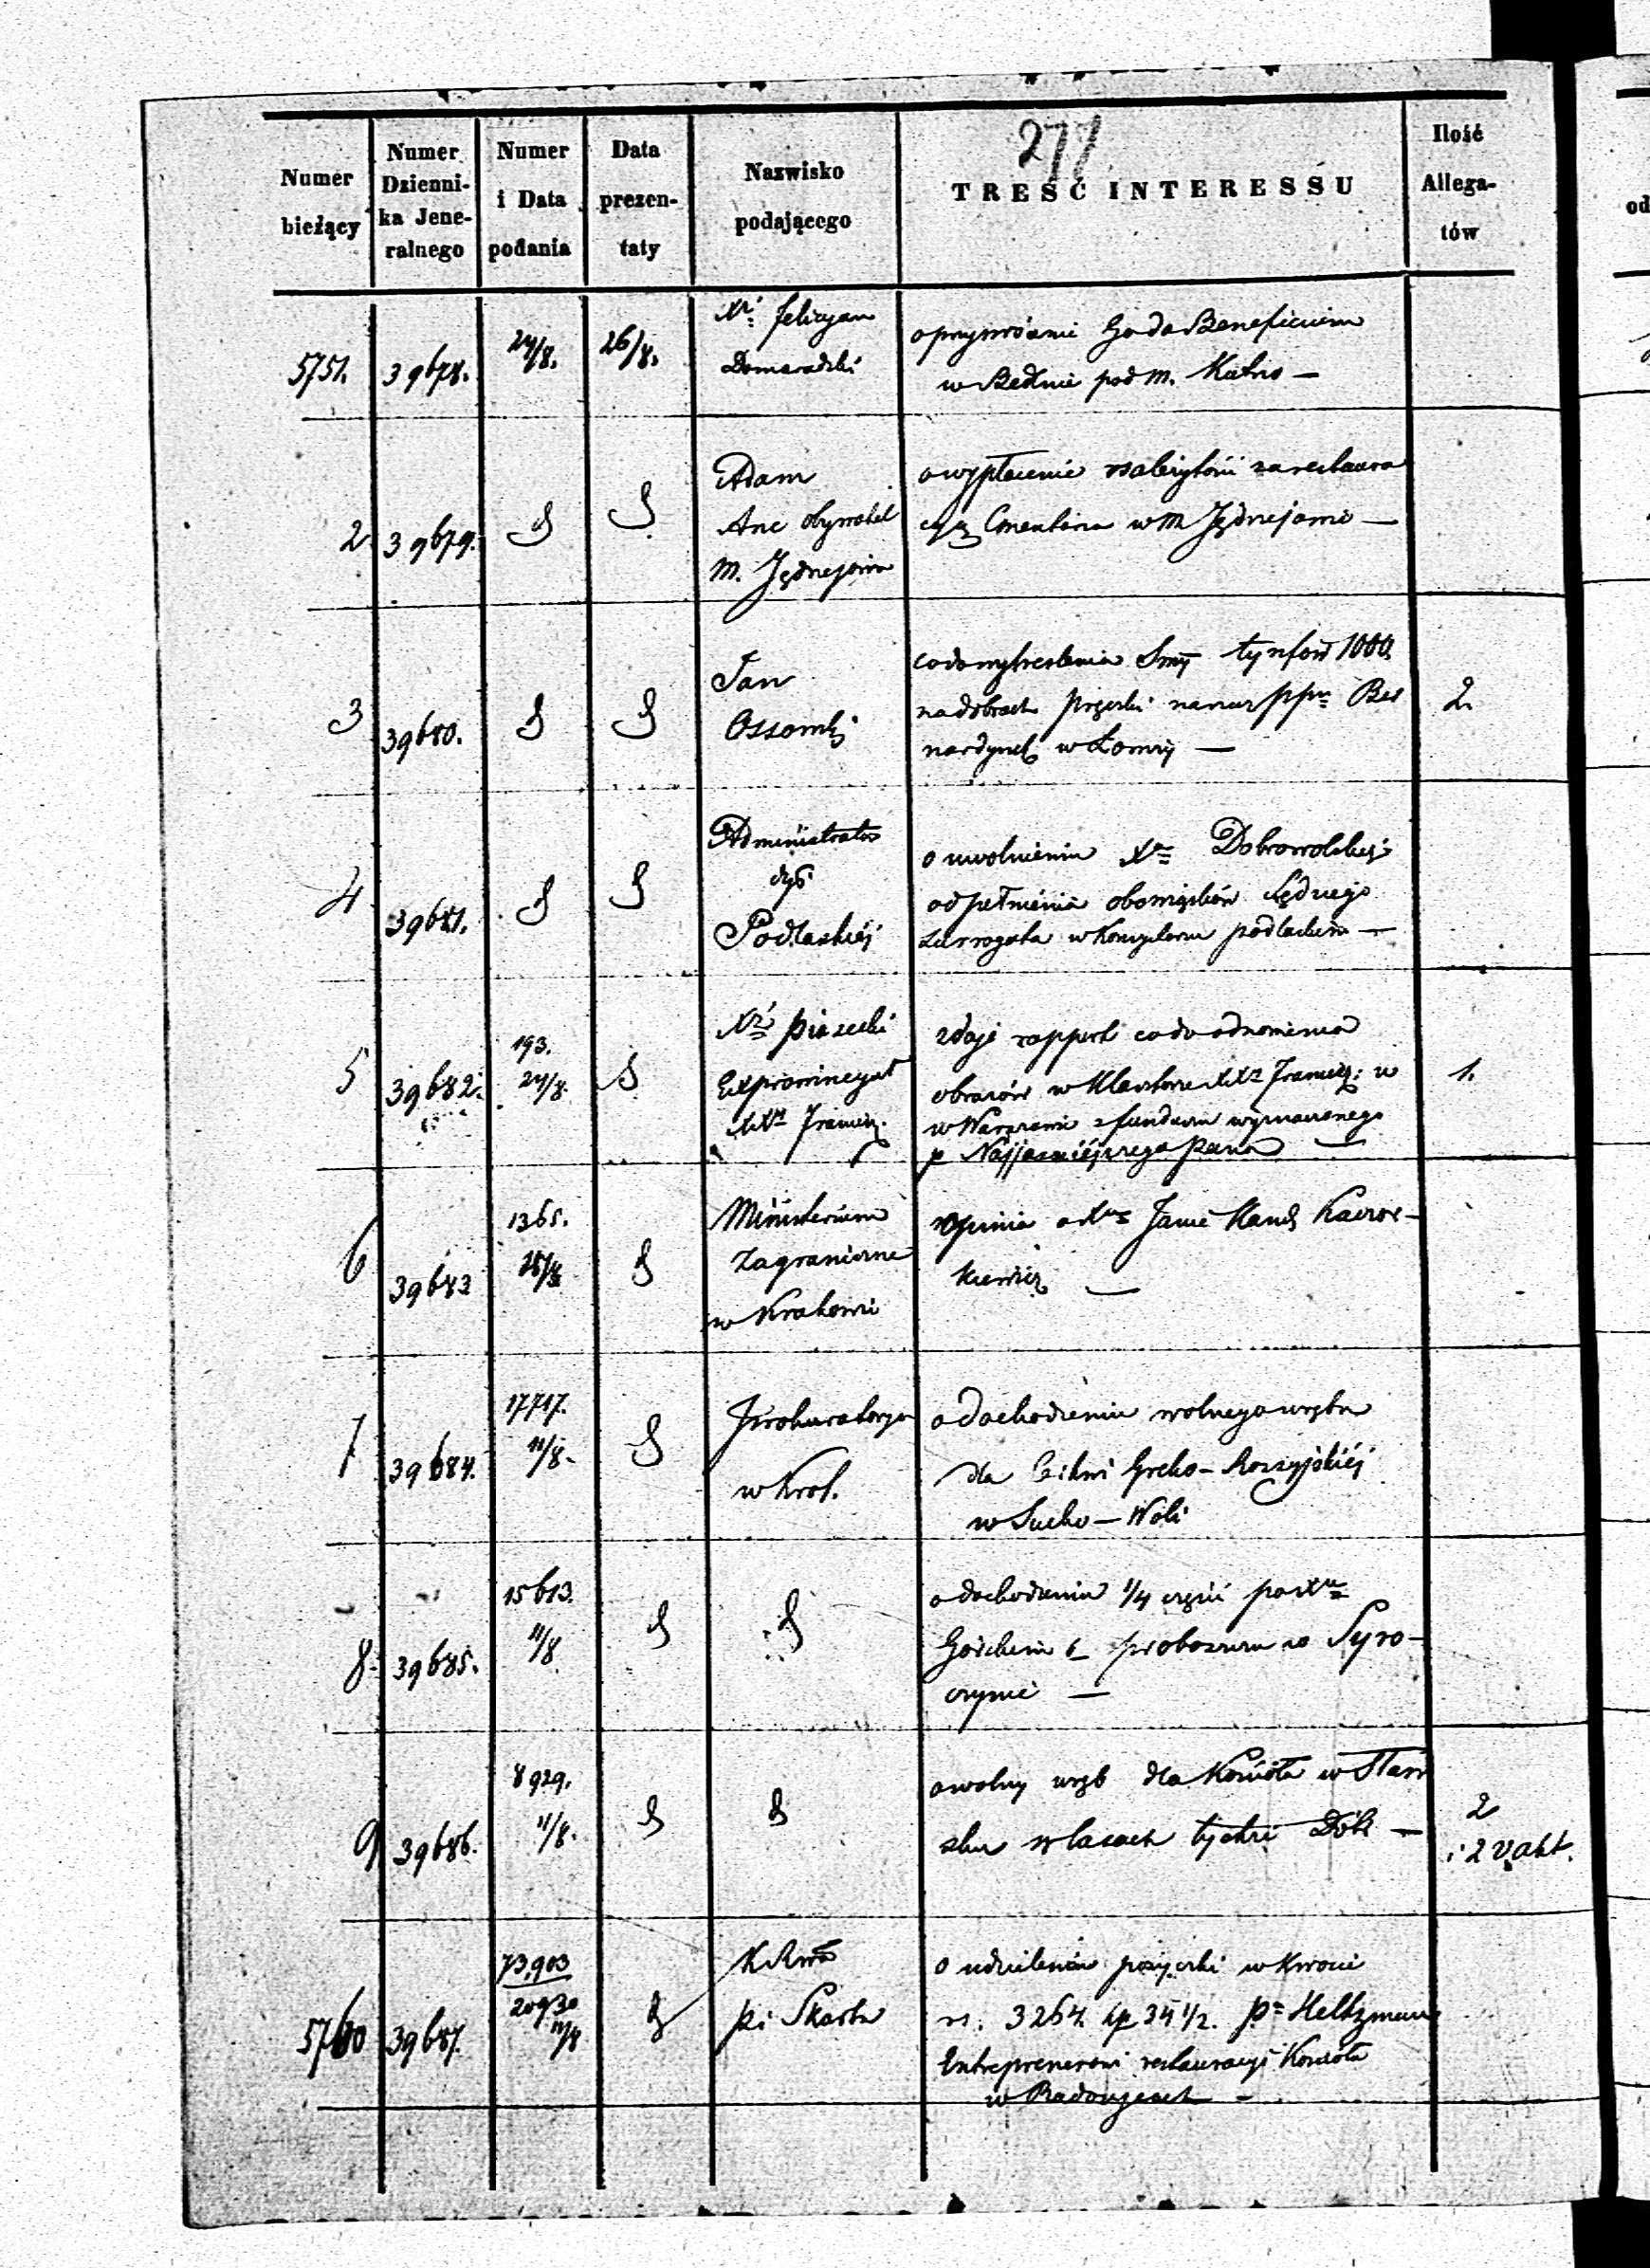 277
Numer bieżący
Numer Dzienni-ka Jene-ralnego
Numer i Data podania
Data prezen-taty
Nazwisko podającego
TREŚĆ INTERESSU
Ilość Allega-tów
5751. 39678. 24/8. 26/8.
Xd: Felicyan
Domaradzki
o przywróceniu Go do Beneficium
w Bedlnie pod m. Kutno —
2. 39679.
Adam
obywatel
m. Jędrzejowa
o wypłacenie za restaura
cyą Cmentarza w m Jędrzejowie —
3 39680.
Jan
co do wykreślenia Smy tynfów 1000
na dobrach na rzecz Ber
nardynek w Łomży —
2.
4 39681.
Administrator
dyś
Podlaskiéj
o uwolnieniu Xa Dobrowolskiego
od pełnienia obowiązków Sędziego
Surrogata w Konsystorzu podlaskim —
5 39682. 193. 24/8.
Xdz Piasecki
Exprowincyał
XXn Francisz.
zdaje rapport co do odnowienia
obrazów w Klasztorze XXn Francisz: w
w Warszawie z funduszu wyznaczonego
p Najjaśniejszego Pana —
1.
6 39683 1365.
Ministerium
Zagraniczne
w Krakowie
opinia o Xdz Janie Kand
—
7 39684. 17717. 11/8.
Prokuratorya
w Król.
o dochodzeniu wolnego wrębu
dla Cerkwi Greko-Rossyjskiéj
w Sucho-Woli
8. 39685. 15613. 11/8
o dochodzeniu 1/4 części po Xdzu
Górskim b proboszczu w Syro-
czynie —
9 39686. 8929. 11/8.
o wolny wręb dla Kościoła w
w lasach tychże Dóbr —
2
i 2 v. akt.
5760 39687. 73,903
20930
11/8
K Rwa
Pi Skarbu
o udzieleniu pożyczki w kwocie
rs. 3264. kp 34 1/2. Pu
Entreprenerowi restauracyi Kościoła
w —